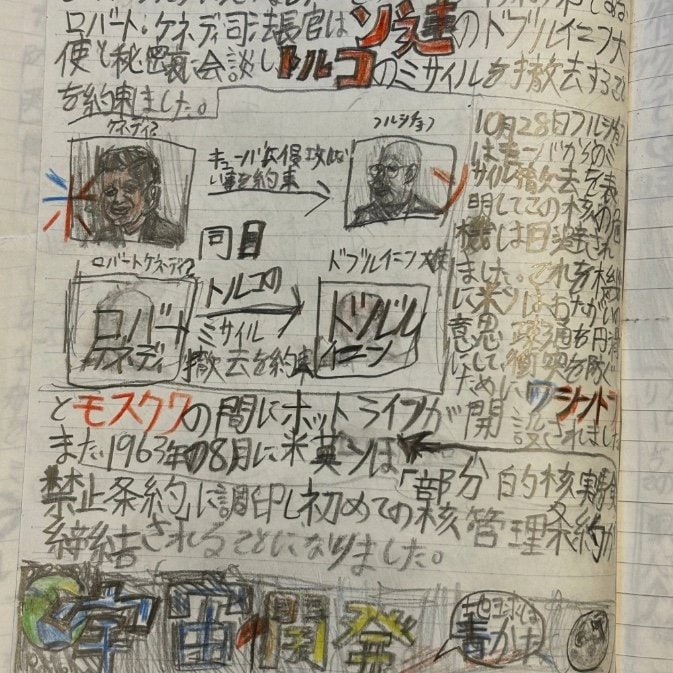 ロバート・ケネディ司法長官はソ連のドブルイニン大
使と秘密裏に会談しトルコのミサイルを撤去すること
を約束ました。
ケネディ
フルシチョフ
米
キューバに侵攻しな
い事を約束
ソ
同日
ロバートケネディ
ドブルイニン大使
ロバート
ケネディ
トルコの
ミサイル
撤去を約束
ドブルイニン
10月28日フルシチョフ
はキューバからのミ
サイル撤去を表
明してこの核の危
機は回避され
ました。これを機
に米ソはおたがいの
意思疎通を円滑に
して、政
衝突を防
ぐために
ワシントン
とモスクワの間にホットラインが開設されました
また1963年の8月に米英ソは「部分的核実験
禁止条約」に調印し初めての核管理条約が
締結されることになりました。
宇宙開発
地球は
青かった